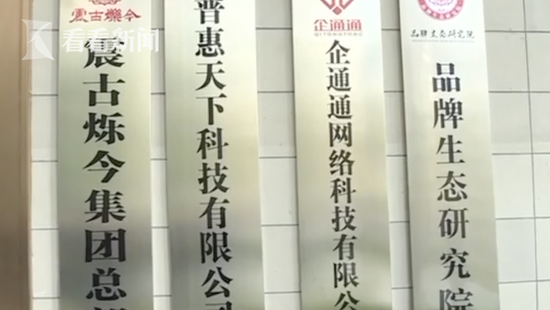 看看新闻
震古烁今
震古烁今集团总
普惠天下科技有限公司
企通通
QITONGTONG
企通通网络科技有限公
品牌生态研究院
品牌生态研究院